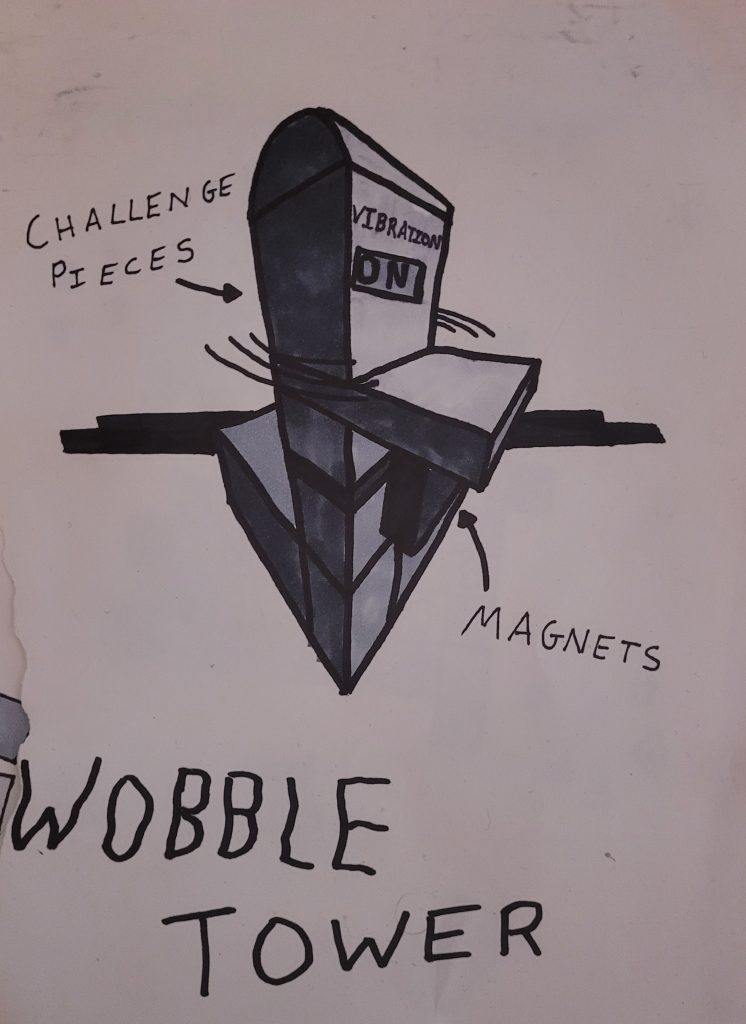 CHALLENGE
PIECES
VIBRATION
ON
MAGNETS
WOBBLE
TOWER